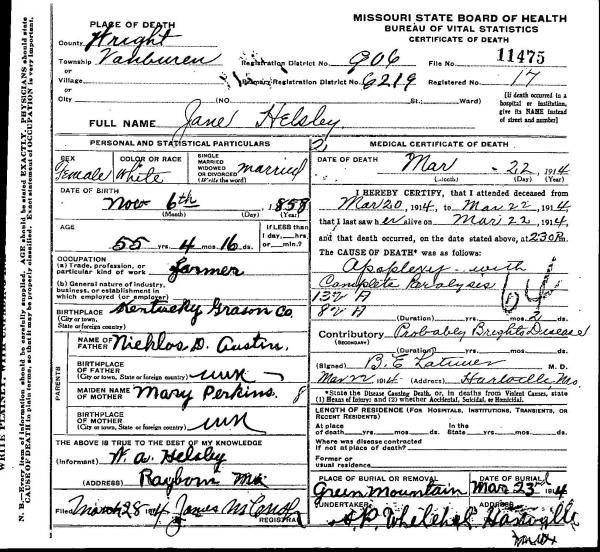 MISSOURI STATE BOARD OF HEALTH
BUREAU OF VITAL STATISTICS
CERTIFICATE OF DEATH
PLACE OF DEATH
County Wright
Township Vanburen
or
Village
or
City
Registration District No. 906
File No. 11475
Primary Registration District No. 6219
Registered No. 17
(NO. St.; Ward)
[If death occurred in a
hospital or institution,
give its NAME instead
of street and number]
FULL NAME Jane Helsley.
PERSONAL AND STATISTICAL PARTICULARS
SEX Female
COLOR OR RACE White
SINGLE
MARRIED
WIDOWED
OR DIVORCED
(Write the word)
married
DATE OF BIRTH
Nov 6th 1858
(Month) (Day) (Year)
AGE
55 yrs. 4 mos. 16 ds.
If LESS than
1 day, hrs.
or min.?
OCCUPATION
(a) Trade, profession, or
particular kind of work farmer
(b) General nature of industry,
business, or establishment in
which employed (or employer)
BIRTHPLACE
(City or town,
State or foreign country)
Kentucky Grason Co.
PARENTS
NAME OF
FATHER Nichlos D. Austin.
BIRTHPLACE
OF FATHER
(City or town, State or foreign country) unk
MAIDEN NAME
OF MOTHER Mary Perkins. 8
BIRTHPLACE
OF MOTHER
(City or town, State or foreign country) unk
THE ABOVE IS TRUE TO THE BEST OF MY KNOWLEDGE
(Informant) W. A. Helsley
(ADDRESS) Rayborn Mo.
Filed March 28 1914 James
REGISTRAR
MEDICAL CERTIFICATE OF DEATH
DATE OF DEATH
Mar 22, 1914
(Month) (Day) (Year)
I HEREBY CERTIFY, that I attended deceased from
Mar 20, 1914, to Mar 22, 1914
that I last saw her alive on Mar 22, 1914
and that death occurred, on the date stated above, at 230 P.m.
The CAUSE OF DEATH* was as follows:
Apoplexy with
Complete Paralysis
132 A
82 A
(Duration) yrs. mos. 2 ds.
Contributory Probably Brights Disease
(SECONDARY)
(Duration) yrs. mos. ds.
(Signed) B. E. Latimer M. D.
Mar 22 1914 (Address) Hartville Mo.
*State the Disease Causing Death, or, in deaths from Violent Causes, state
(1) Means of Injury; and (2) whether Accidental, Suicidal, or Homicidal.
LENGTH OF RESIDENCE (FOR HOSPITALS, INSTITUTIONS, TRANSIENTS, OR
RECENT RESIDENTS)
At place
of death yrs. mos. ds.
In the
State yrs. mos. ds.
Where was disease contracted
if not at place of death?
Former or
usual residence
PLACE OF BURIAL OR REMOVAL
Green Mountain
DATE OF BURIAL
Mar 23rd 1914
UNDERTAKER
ADDRESS
Hartville
N. B.—Every item of information should be carefully supplied. AGE should be stated EXACTLY. PHYSICIANS should state
CAUSE OF DEATH in plain terms, so that it may be properly classified. Exact statement of OCCUPATION is very important.